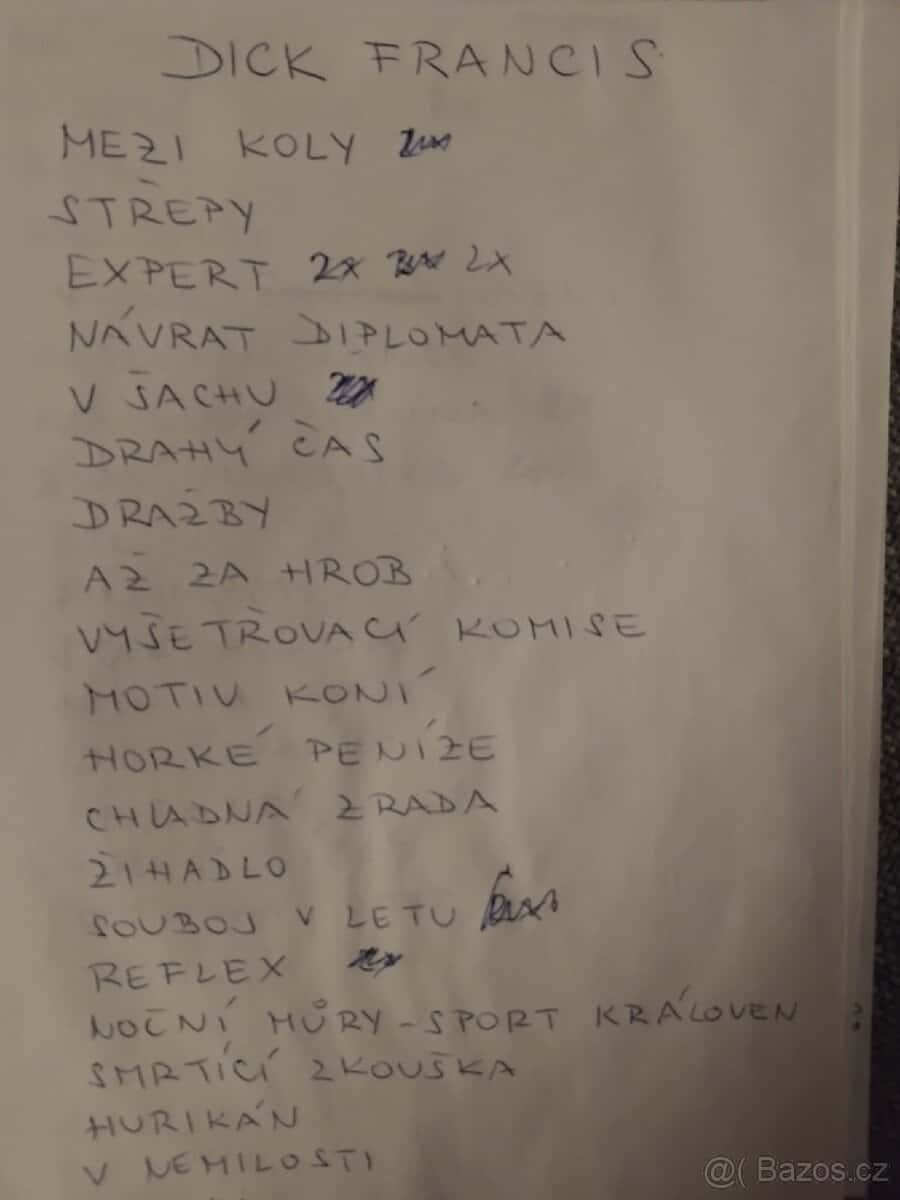 DICK FRANCIS
MEZI KOLY
STŘEPY
EXPERT 2X 2X
NÁVRAT DIPLOMATA
V ŠACHU
DRAHÝ ČAS
DRAŽBY
AŽ ZA HROB
VYŠETŘOVACÍ KOMISE
MOTIV KONÍ
HORKÉ PENÍZE
CHLADNÁ ZRADA
ŽIHADLO
SOUBOJ V LETU
REFLEX
NOČNÍ MŮRY - SPORT KRÁLOVEN ?
SMRTÍCÍ ZKOUŠKA
HURIKÁN
V NEMILOSTI
@( Bazos.cz